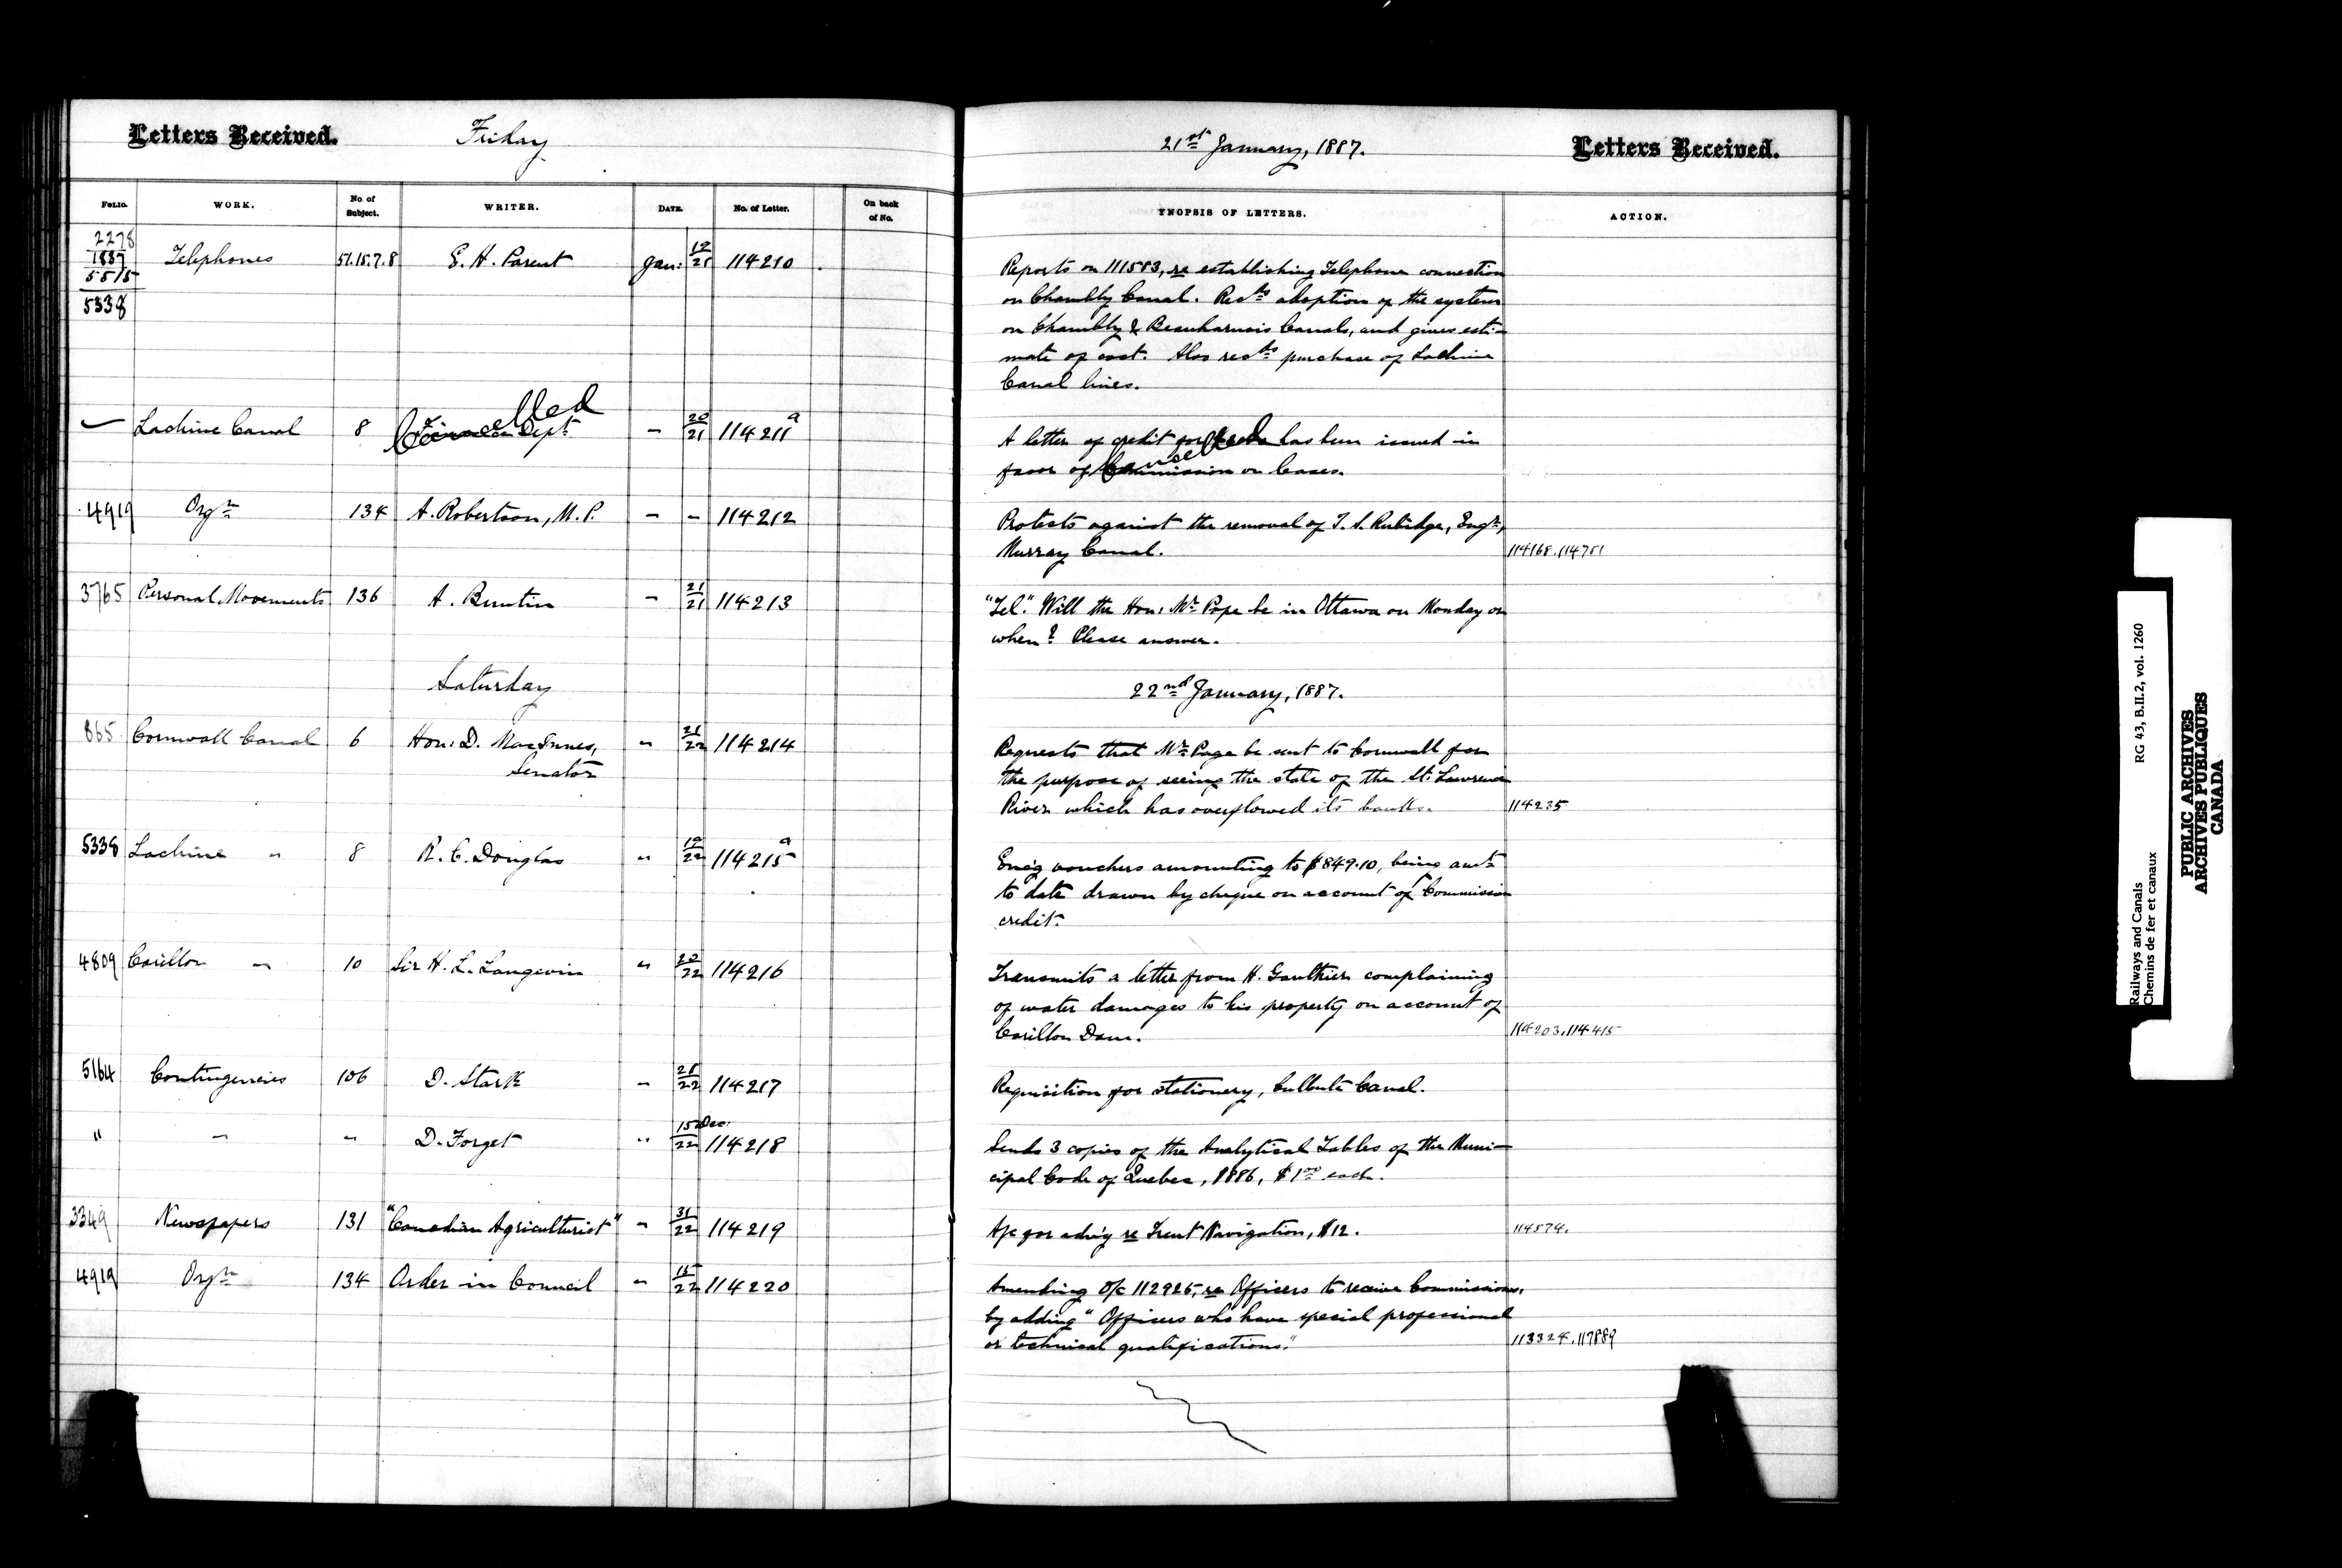 Letters Received. Friday
21st January, 1887. Letters Received.
FOLIO. WORK. No. of Subject. WRITER. DATE. No. of Letter. On back of No.
YNOPSIS OF LETTERS. ACTION.
2278
1887
5515
5338
Telephones 51.15.7.8 E. H. Parent Jan: 19/21 114210
Reports on 111583, re establishing Telephone connection
on Chambly Canal. Recds adoption of the system
on Chambly & Beauharnois Canals, and gives esti-
mate of cost. Also recds purchase of Lachine
Canal lines.
Lachine Canal 8 Finance Dept Cancelled " 20/21 114211 a
A letter of credit for has been issued in
favor of Commission on leases. Cancelled
4919 Orgn 134 A. Robertson, M.P. " " 114212
Protests against the removal of T. S. Rubidge, Engr,
Murray Canal. 114168.114751
3765 Personal Movements 136 A. Buntin " 21/21 114213
"Tel." Will the Hon: Mr Pope be in Ottawa on Monday or
when? Please answer.
Saturday
22nd January, 1887.
865 Cornwall Canal 6 Hon: D. MacInnes, Senator " 21/22 114214
Requests that Mr Page be sent to Cornwall for
the purpose of seeing the state of the St. Lawrence
River which has overflowed its banks. 114235
5338 Lachine " 8 R. C. Douglas " 19/22 114215 a
Enc'g vouchers amounting to $849.10, being amt
to date drawn by cheque on account of Commission
credit.
4809 Carillon " 10 Sir H. L. Langevin " 20/22 114216
Transmits a letter from H. Gauthier complaining
of water damages to his property on account of
Carillon Dam. 114203.114415
5164 Contingencies 106 D. Stark " 21/22 114217
Requisition for stationery, Culbute Canal.
" " " D. Forget " 15 Dec:/22 114218
Sends 3 copies of the Analytical Tables of the Muni-
cipal Code of Quebec, 1886, $1.00 each.
3349 Newspapers 131 "Canadian Agriculturist" " 31/22 114219
A/c for adv'g re Trent Navigation, $12. 114574.
4919 Orgn 134 Order in Council " 15/22 114220
Amending O/c 112925, re Officers to receive Commissions,
by adding "Officers who have special professional
or technical qualifications." 113324.117889
Railways and Canals RG 43, B.II.2, vol. 1260
Chemins de fer et canaux
PUBLIC ARCHIVES
ARCHIVES PUBLIQUES
CANADA